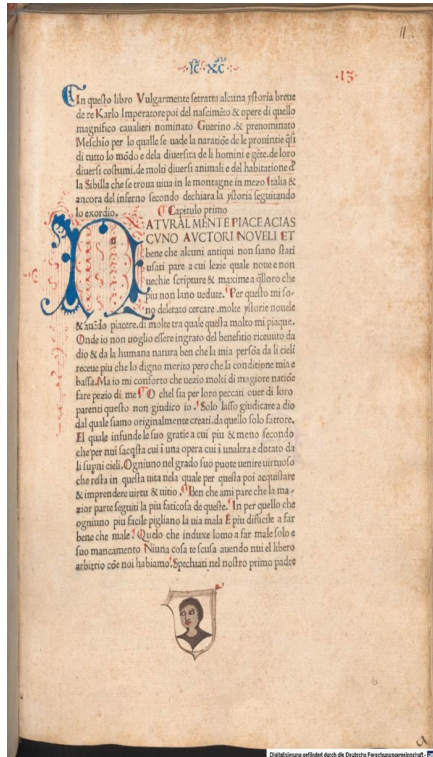 11.
·ic·xc·
·13·
In questo libro Vulgarmente se tratta alcuna ystoria breue
de re Karlo Imperatore poi del nascimẽto & opere di quello
magnifico caualieri nominato Guerino .& prenominato
Meschio per lo qualle se uade la naratiõe de le prouintie q̃si
di tutto lo mõdo e dela diuersita de li homini e gẽte .de loro
diuersi costumi .de molti diuersi animali e del habitatione d̃
la Sibilla che se troua uiua in le montagne in mezo Italia &
ancora del inferno secondo dechiara la ystoria seguitando
lo exordio. Capitulo primo
NATVRALMENTE PIACE A CIAS
CVNO AVCTORI NOVELI ET
bene che alcuni antiqui non siano stati
usati pare a cui lezie quale noue e non
uechie scripture & maxime a q̃lloro che
piu non lano uedute. Per questo mi so-
no deletato cercare .molte ystorie nouele
& auẽdo piacere .di molte tra quale questa molto mi piaque.
Onde io non uoglio essere ingrato del benefitio riceuuto da
dio & da la humana natura ben che la mia persõa da li cieli
receue piu che lo digno merito pero che la conditione mia e
bassa. Ma io mi conforto che uezio molti di magiore natiõe
fare pezio di me O chel sia per loro peccati ouer di loro
parenti questo non giudico io . Solo lasso giudicare a dio
dal quale siamo originalmente creati .da quello solo fattore.
El quale infunde le suo gratie a cui piu & meno secondo
che per nui sacq̃sta cui ĩ una opera cui ĩ unaltra e dotato da
li supni cieli. Ogniuno nel grado suo puote uenire uirtuoso
che resta in questa uita nela quale per questa poi acquistare
& imprendere uirtu & uitio . Ben che a mi pare che la ma-
zior parte seguiti la piu faticosa de queste. In per quello che
ogniuno piu facile pigliano la uia mala E piu dificile a far
bene che male. Quelo che induxe lomo a far male solo e
suo mancamento Niuna cosa te scusa auendo nui el libero
arbitrio cõe noi habiamo. Spechiati nel nostro primo padre
a
Digitalisierung gefördert durch die Deutsche Forschungsgemeinschaft -